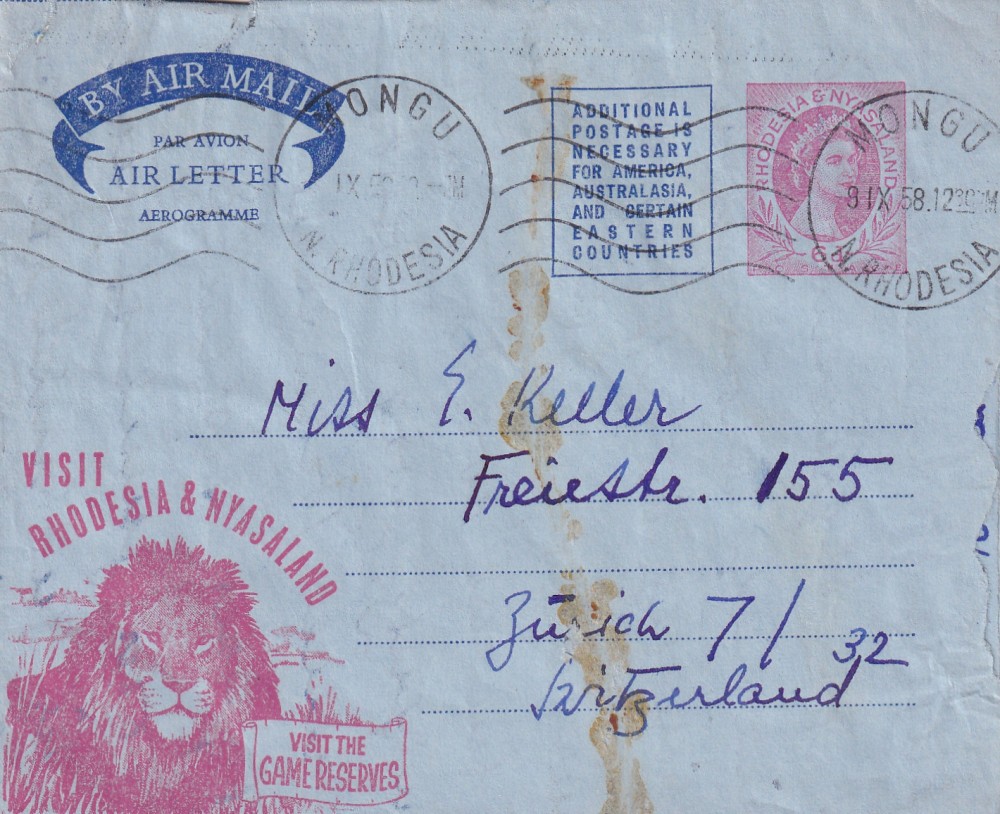 BY AIR MAIL
PAR AVION
AIR LETTER
AEROGRAMME
MONGU
N. RHODESIA
ADDITIONAL
POSTAGE IS
NECESSARY
FOR AMERICA,
AUSTRALASIA,
AND CERTAIN
EASTERN
COUNTRIES
RHODESIA & NYASALAND
MONGU
9 IX 58.12
N. RHODESIA
Miss E. Keller
Freiestr. 155
Zürich 7/32
Switzerland
VISIT
RHODESIA & NYASALAND
VISIT THE
GAME RESERVES